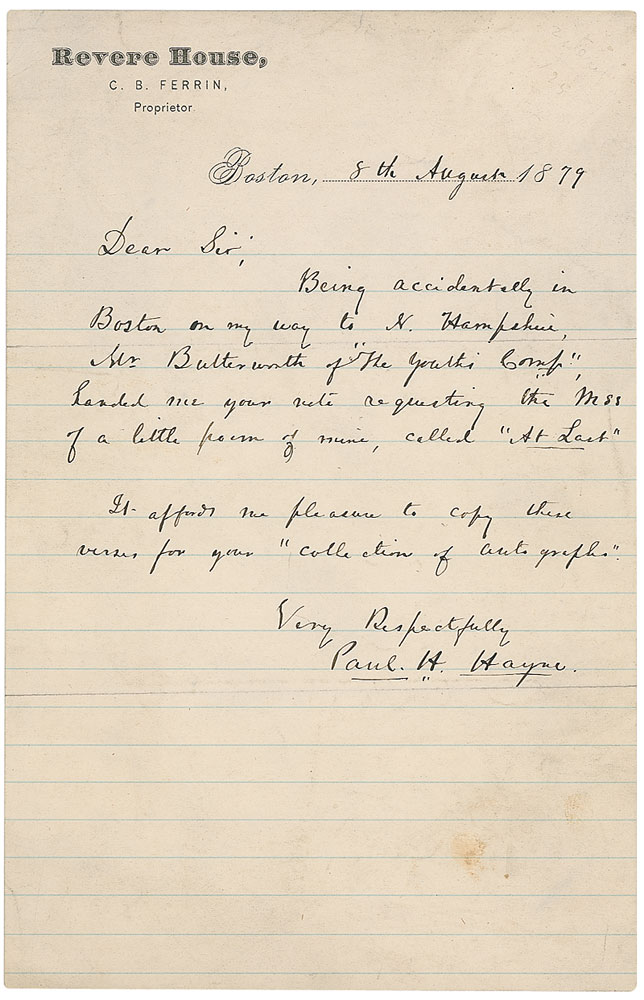 Revere House,
C. B. FERRIN,
Proprietor
Boston, 8th August 1879
Dear Sir;
Being accidentally in
Boston on my way to N. Hampshire,
Mr Butterworth of "The Youth's Comp",
handed me your note requesting the Mss
of a little poem of mine, called "At Last"
It affords me pleasure to copy these
verses for your "collection of autographs".
Very Respectfully
Paul. H. Hayne.